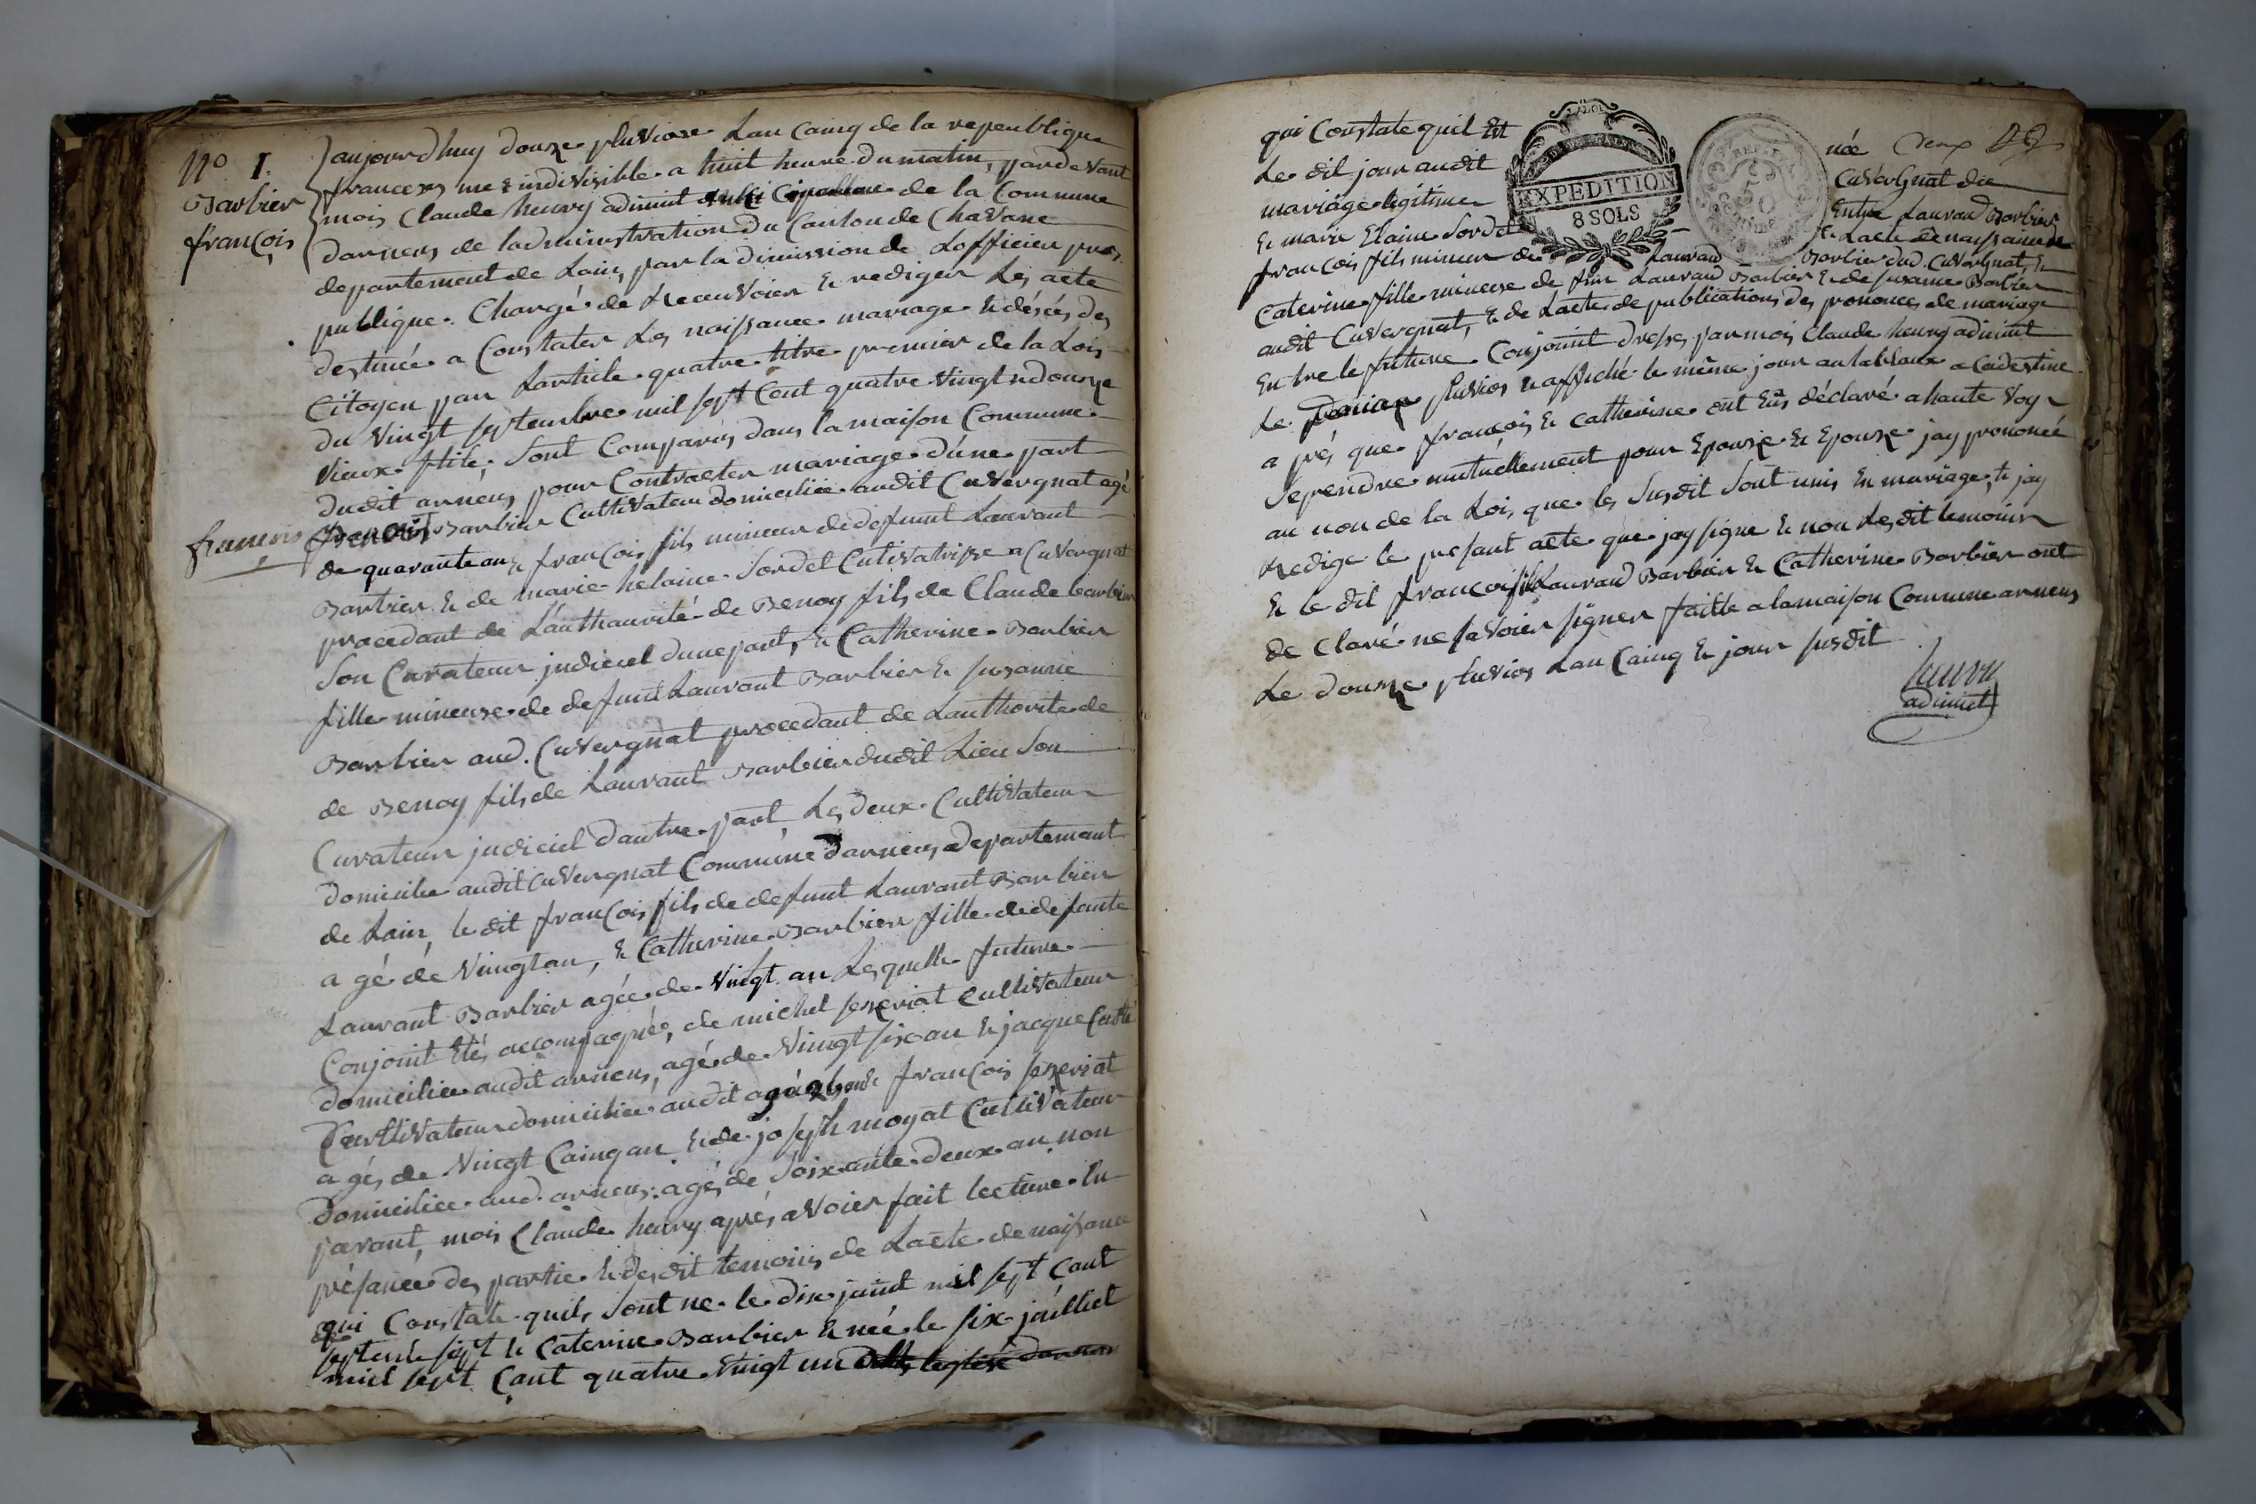 N° 1.
Barbier
françois
aujourdhuy douze pluviose Lan Cainq de la repeublique
francesse une & indivisible a huit heure du matin, pardevant
mois Claude henry adimint de la Commune
darnens de ladminustration du Canton de Chavane
departement de Lain, par la dimission de Lofficier
publique. Chargé de Recauvoier & rediger Les acte
destinée a Constater Les naissance mariage & décés des
Citoyen par Larticle quatre titre premier de la Lois
du Vingt septembre mil sept Cent quatre Vingt & douze
Vieux stile; Sont Comparus dans la maison Commune
dudit arnens pour Contracter mariage d'une part
françois
françois Barbier Cultivateur domiciliée audit Cuvergnat agé
de quarante an & françois fils mineur de defeunt Laurant
Barbier & de marie helaine Sordet Cutivatrisse a Cuvergnat
procedant de L'authaurité de Benoy fils de Claude barbier
Son Curateur judiciel dune part, & Catherine Barbier
fille mineuse de defunt Laurant Barbier & susanne
Barbier aud. Cuvergnat procedant de Lauthorite de
de Benoy fils de Laurant Barbier dudit Lieu Son
Curateur judiciel dautre part Les deux Cultivateur
domicilie audit Cuvergnat Commune darnens departemant
de Lain, le dit françois fils de defunt Laurant Barbier
agé de Vingt an, & Catherine Barbier fille de defunte
Laurant Barbier agée de Vingt an Lesquelle future
Conjoint étés accompagnée, de michel sexeriat cultivateur
domiciliee audit arnens, agé de Vingt six an & jacque
Cultivateur domiciliee audit & françois sexeriat
agés de Vingt Cainq an & de joseph moyat Cultivateur
domiciliee aud. arnens. agés de Soixante deux an non
parant, mois Claude henry aprés avoier fait lecture En
présance des partie & desdit temoins de Lacte de naissance
qui Constate quils Sont ne le dix juint mil sept Cant
septente sept & Caterine Barbier & née le six juilliet
miel sept Cant quatre Vingt un
deux
qui Constate quil Est née
Le dit jour audit Cuvergnat du
mariage legitime Entre Lauraud Barbier
& marie Elaine Sordet & Lacte de naissance de
EXPEDITION
8 SOLS
françois fils mineur de Lauraud Barbier dud. Cuvergnat, &
Caterine fille mineuse de feur Lauraud Barbier & de susanne Barbier
audit Cuvergnat, & de Lacte de publications des prononces de mariage
Entre le future Conjoint dresses par mois Claude henry adimint
Le pluvios & affiché le même jour au tableaux a ca destine
aprés que françois & catherine ont Eus déclaré a haute Voy
Seprendre mutuellement pour Epouze & Epouse jay prononcé
au non de la Loi, que les Susdit Sont unis En mariage, & jay
Redige le presant acte que jay signe & non Lesdit temoins
& le dit françois fils Lauraud Barbier & Catherine Barbier ont
de Claré ne savoier signer faitte a la maison Commune arnens
Le douze pluvios Lan Cainq & jour susdit
henry
adimint